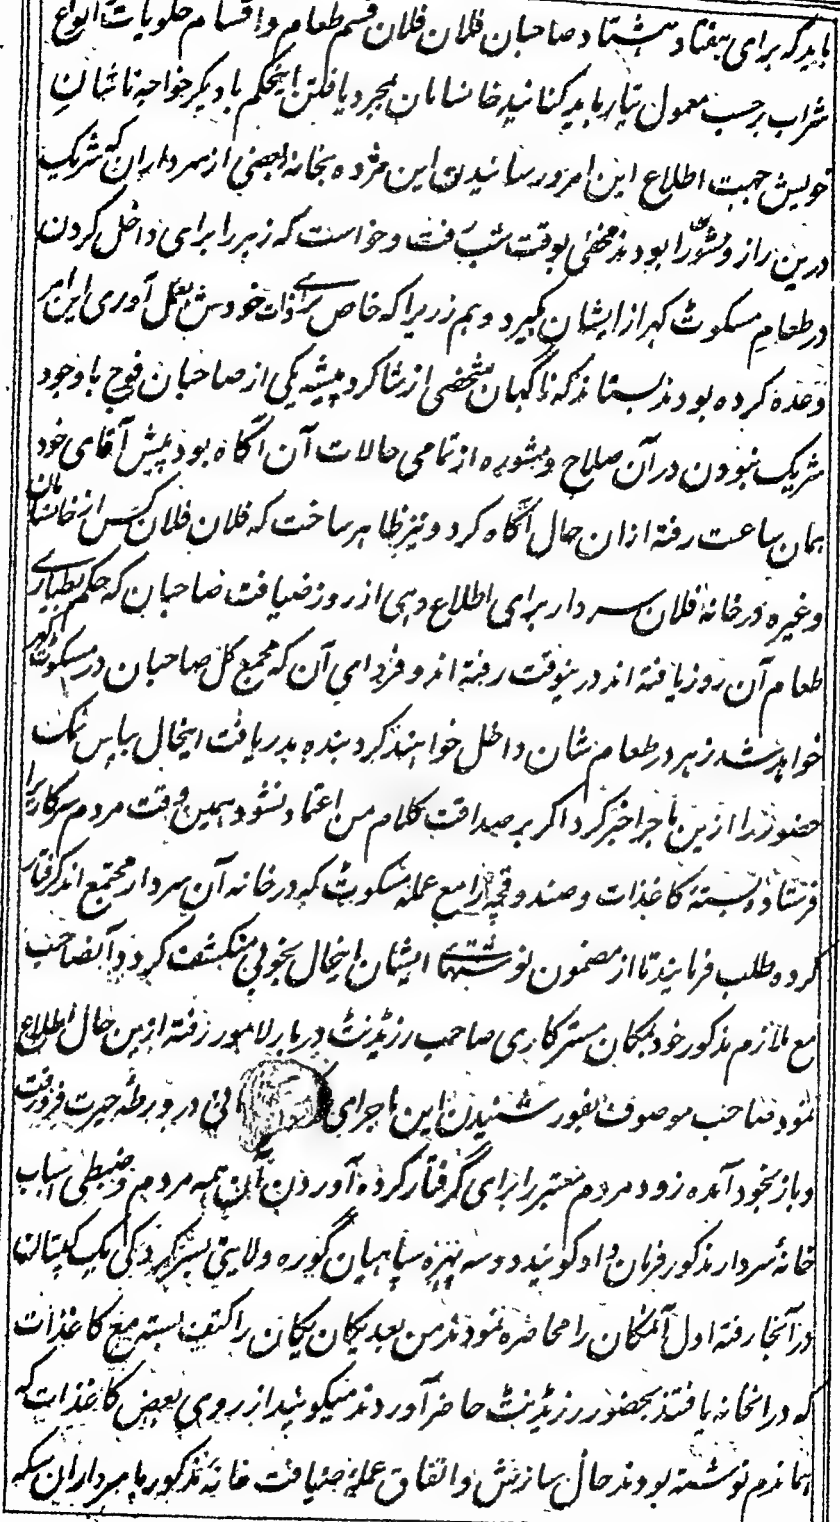 باید که برای هفتاد هشتاد صاحبان فلان فلان قسم طعام و اقسام حلویات انواع
شراب برحسب معمول تیار باید کنانید خانسامان بمجرد یافتن اینحکم با دیگر خواجه تاشان
خویش جهت اطلاع این امر و رسانیدن این مژده بخانه بعضی از سرداران که شریک
درین راز و شورا بودند مخفی بوقت شب رفت و خواست که زهر را برای داخل کردن
در طعام مسکوٹ گهر از ایشان بگیرد و هم زریرا که خاص برای ذات خودش بعمل آوری این امر
وعده کرده بودند بستاند که ناگهان شخصی از شاگرد پیشه یکی از صاحبان فوج باوجود
شریک نبودن در آن صلاح و مشوره از تمامی حالات آن آگاه بود پیش آقای خود
همان ساعت رفته ازان حال آگاه کرد و نیز ظاهر ساخت که فلان فلان کس از خانسامان
وغیره در خانه فلان سردار برای اطلاع دهی از روز ضیافت صاحبان که حکم بطیاری
طعام آن روز یافته اند درینوقت رفته اند و فردای آن که مجمع کل صاحبان در مسکوٹ گهر
خواهد شد زهر در طعام شان داخل خواهند کرد بنده بدریافت اینحال بپاس نمک
حضور را ازین ماجرا خبر کرد اگر بر صداقت کلام من اعتماد نشود همین وقت مردم سرکار را
فرستاده بستهٔ کاغذات و صندوقچه را مع عمله مسکوٹ که در خانه آن سردار مجتمع اند گرفتار
کرده طلب فرمایند تا از مضمون نوشتهای ایشان اینحال بخوبی منکشف گردد آنصاحب
مع ملازم مذکور خود بمکان مستر کاری صاحب رزیڈنٹ دربار لاهور رفته ازین حال اطلاع
نمود صاحب موصوف بفور شنیدن این ماجرای در ورطهٔ حیرت فرو رفت
و باز بخود آمده زود مردم معتبر را برای گرفتار کرده آوردن آن همه مردم و ضبطی اسباب
خانهٔ سردار مذکور فرمان داد گویند دو سه پهره سپاهیان گوره ولایتی بسرکردگی یک کپتان
در آنجا رفته اول آنمکان را محاصره نمودند من بعد یکان یکان را کتف بسته مع کاغذات
که در انخانه یافتند بحضور رزیڈنٹ حاضر آوردند میگویند از روی بعض کاغذات که
هماندم نوشته بودند حال سازش و اتفاق عملهٔ ضیافت خانهٔ مذکور با سرداران سکهه